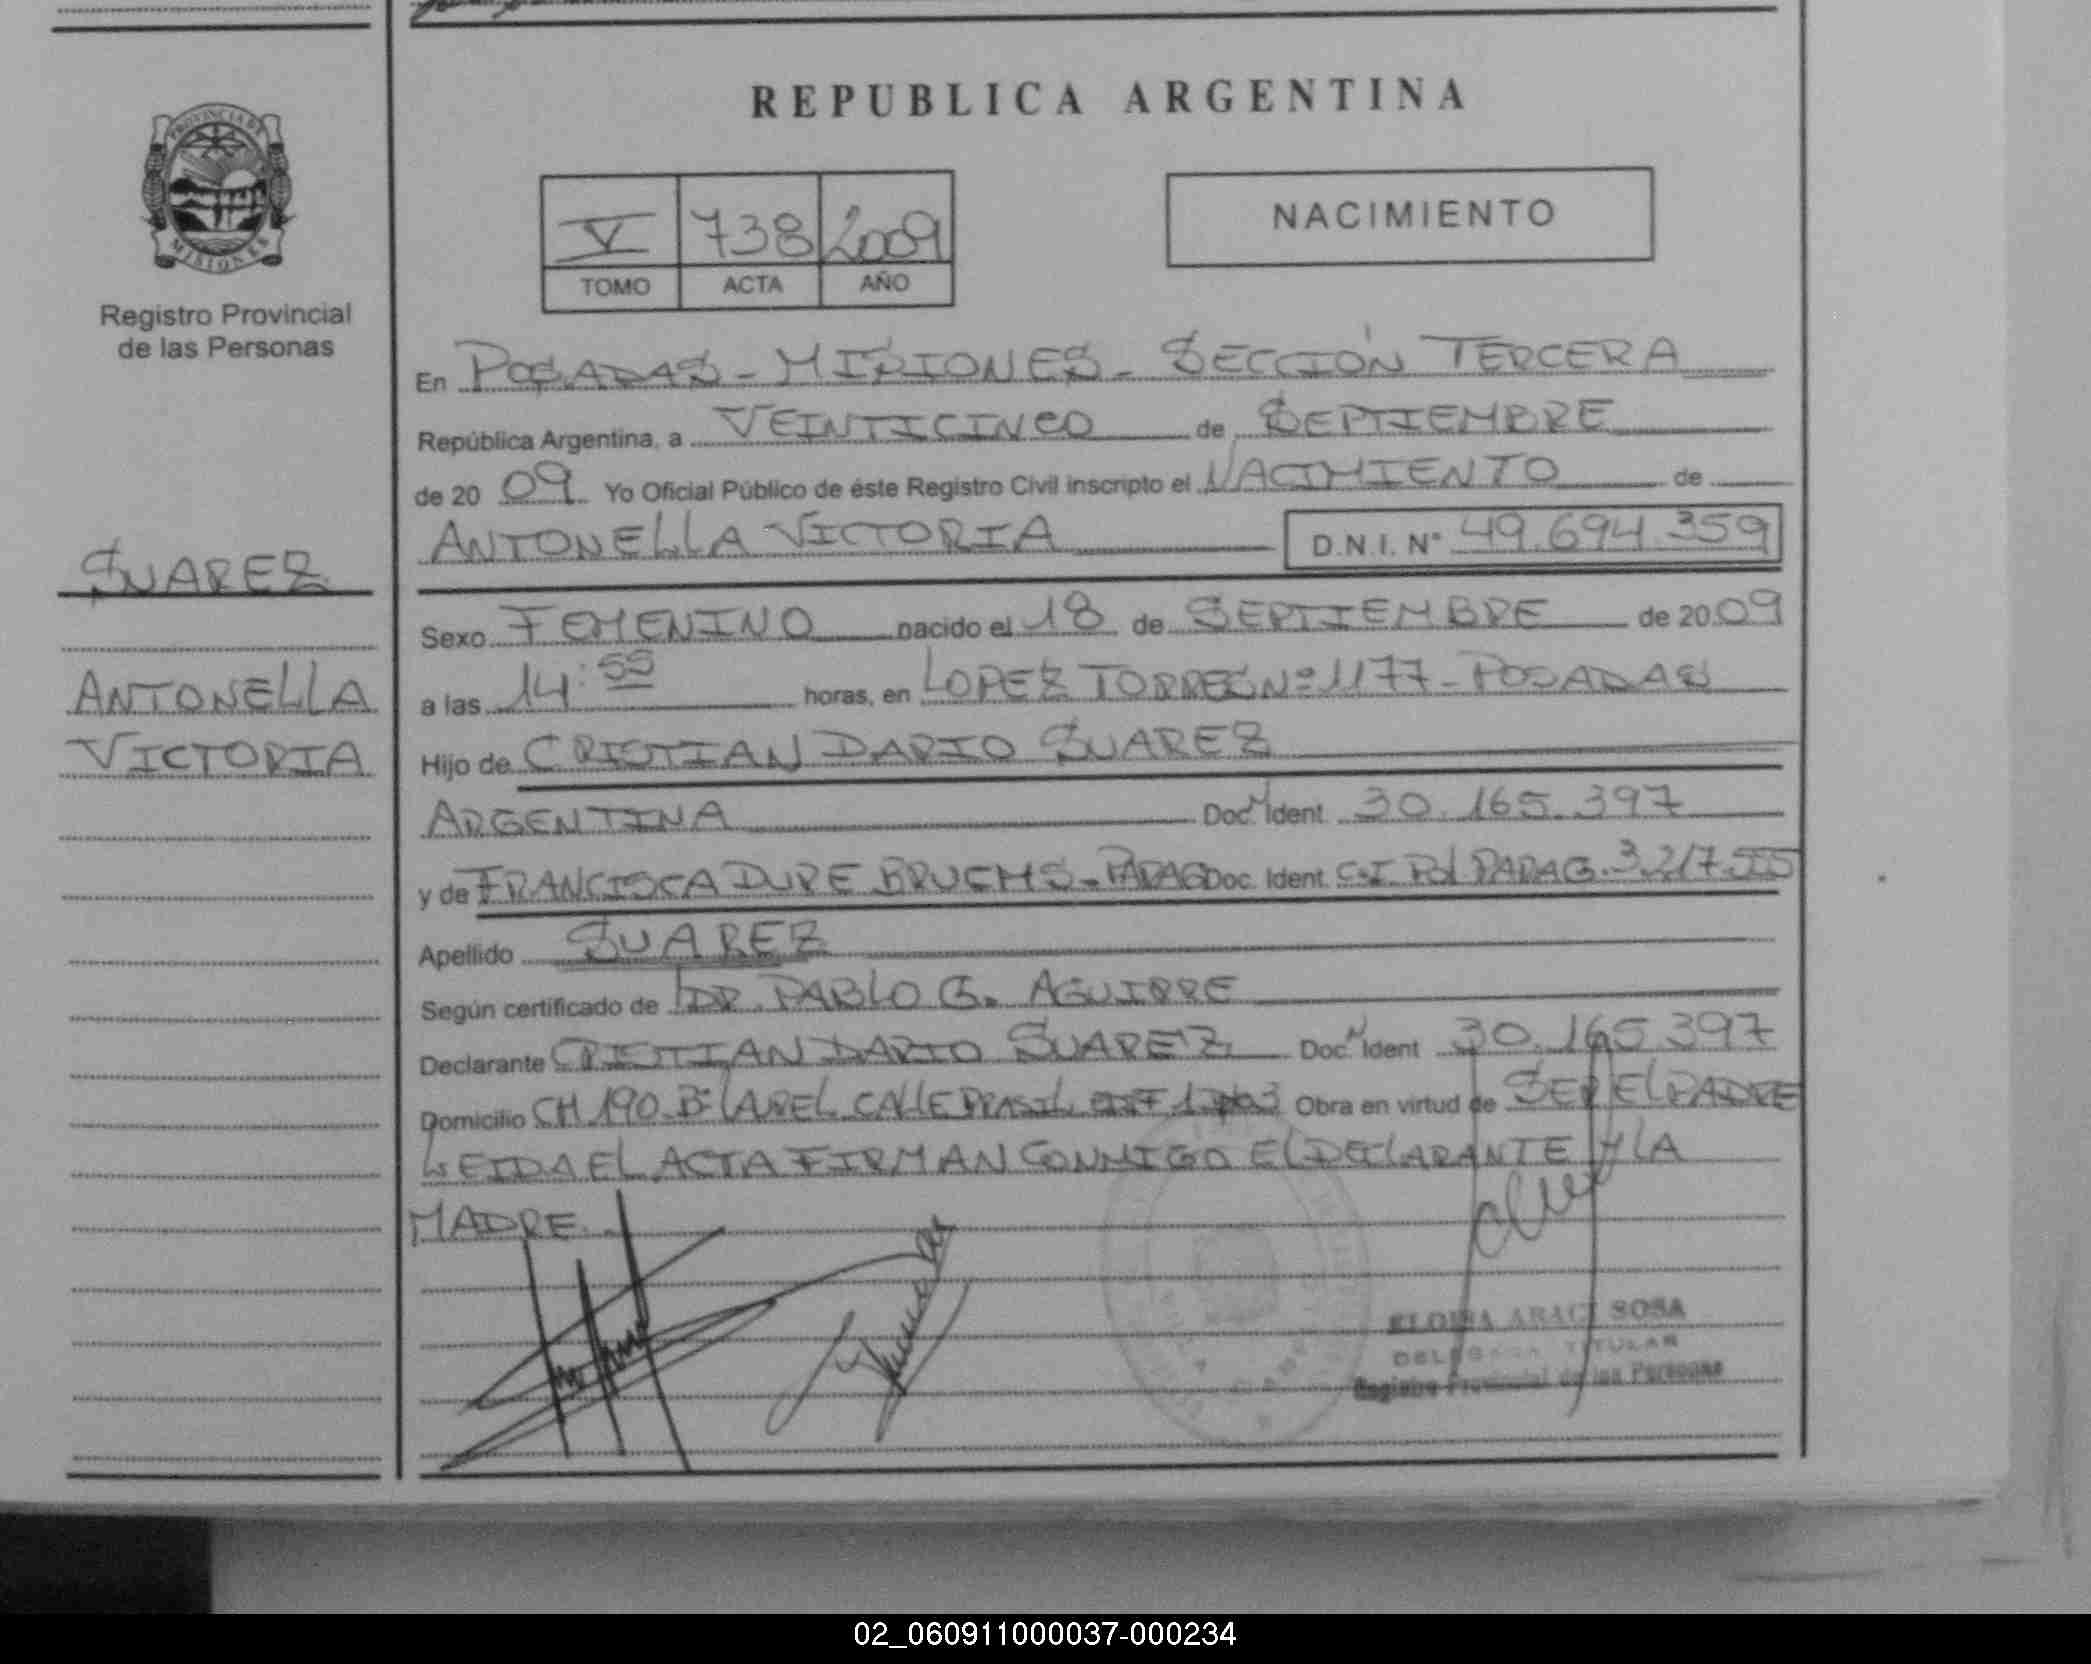 REPUBLICA ARGENTINA
PROVINCIA DE
MISIONES
Registro Provincial
de las Personas
V 738 2009
TOMO ACTA AÑO
NACIMIENTO
En POSADAS - MISIONES - SECCIÓN TERCERA
República Argentina, a VEINTICINCO de SEPTIEMBRE
de 20 09 Yo Oficial Público de éste Registro Civil inscripto el NACIMIENTO de
ANTONELLA VICTORIA D.N.I. N° 49.694.359
SUAREZ
ANTONELLA
VICTORIA
Sexo FEMENINO nacido el 18 de SEPTIEMBRE de 20 09
a las 14:55 horas, en LOPEZ TORRES Nº 1177 - POSADAS
Hijo de CRISTIAN DARIO SUAREZ
ARGENTINA Doc. N Ident. 30.165.397
y de FRANCISCA DURE BRUEMS - PARAG Doc. Ident. C.I. Pol PARAG. 3.217.555
Apellido SUAREZ
Según certificado de DR. PABLO G. AGUIRRE
Declarante CRISTIAN DARIO SUAREZ Doc. N Ident 30.165.397
Domicilio CH 190 Bº LAREL CALLE BRASIL Obra en virtud de SER EL PADRE
LEIDA EL ACTA FIRMAN CONMIGO EL DECLARANTE Y LA
MADRE
ELOISA ARACI SOSA
DELEGADA TITULAR
Registro Provincial de las Personas
02_060911000037-000234